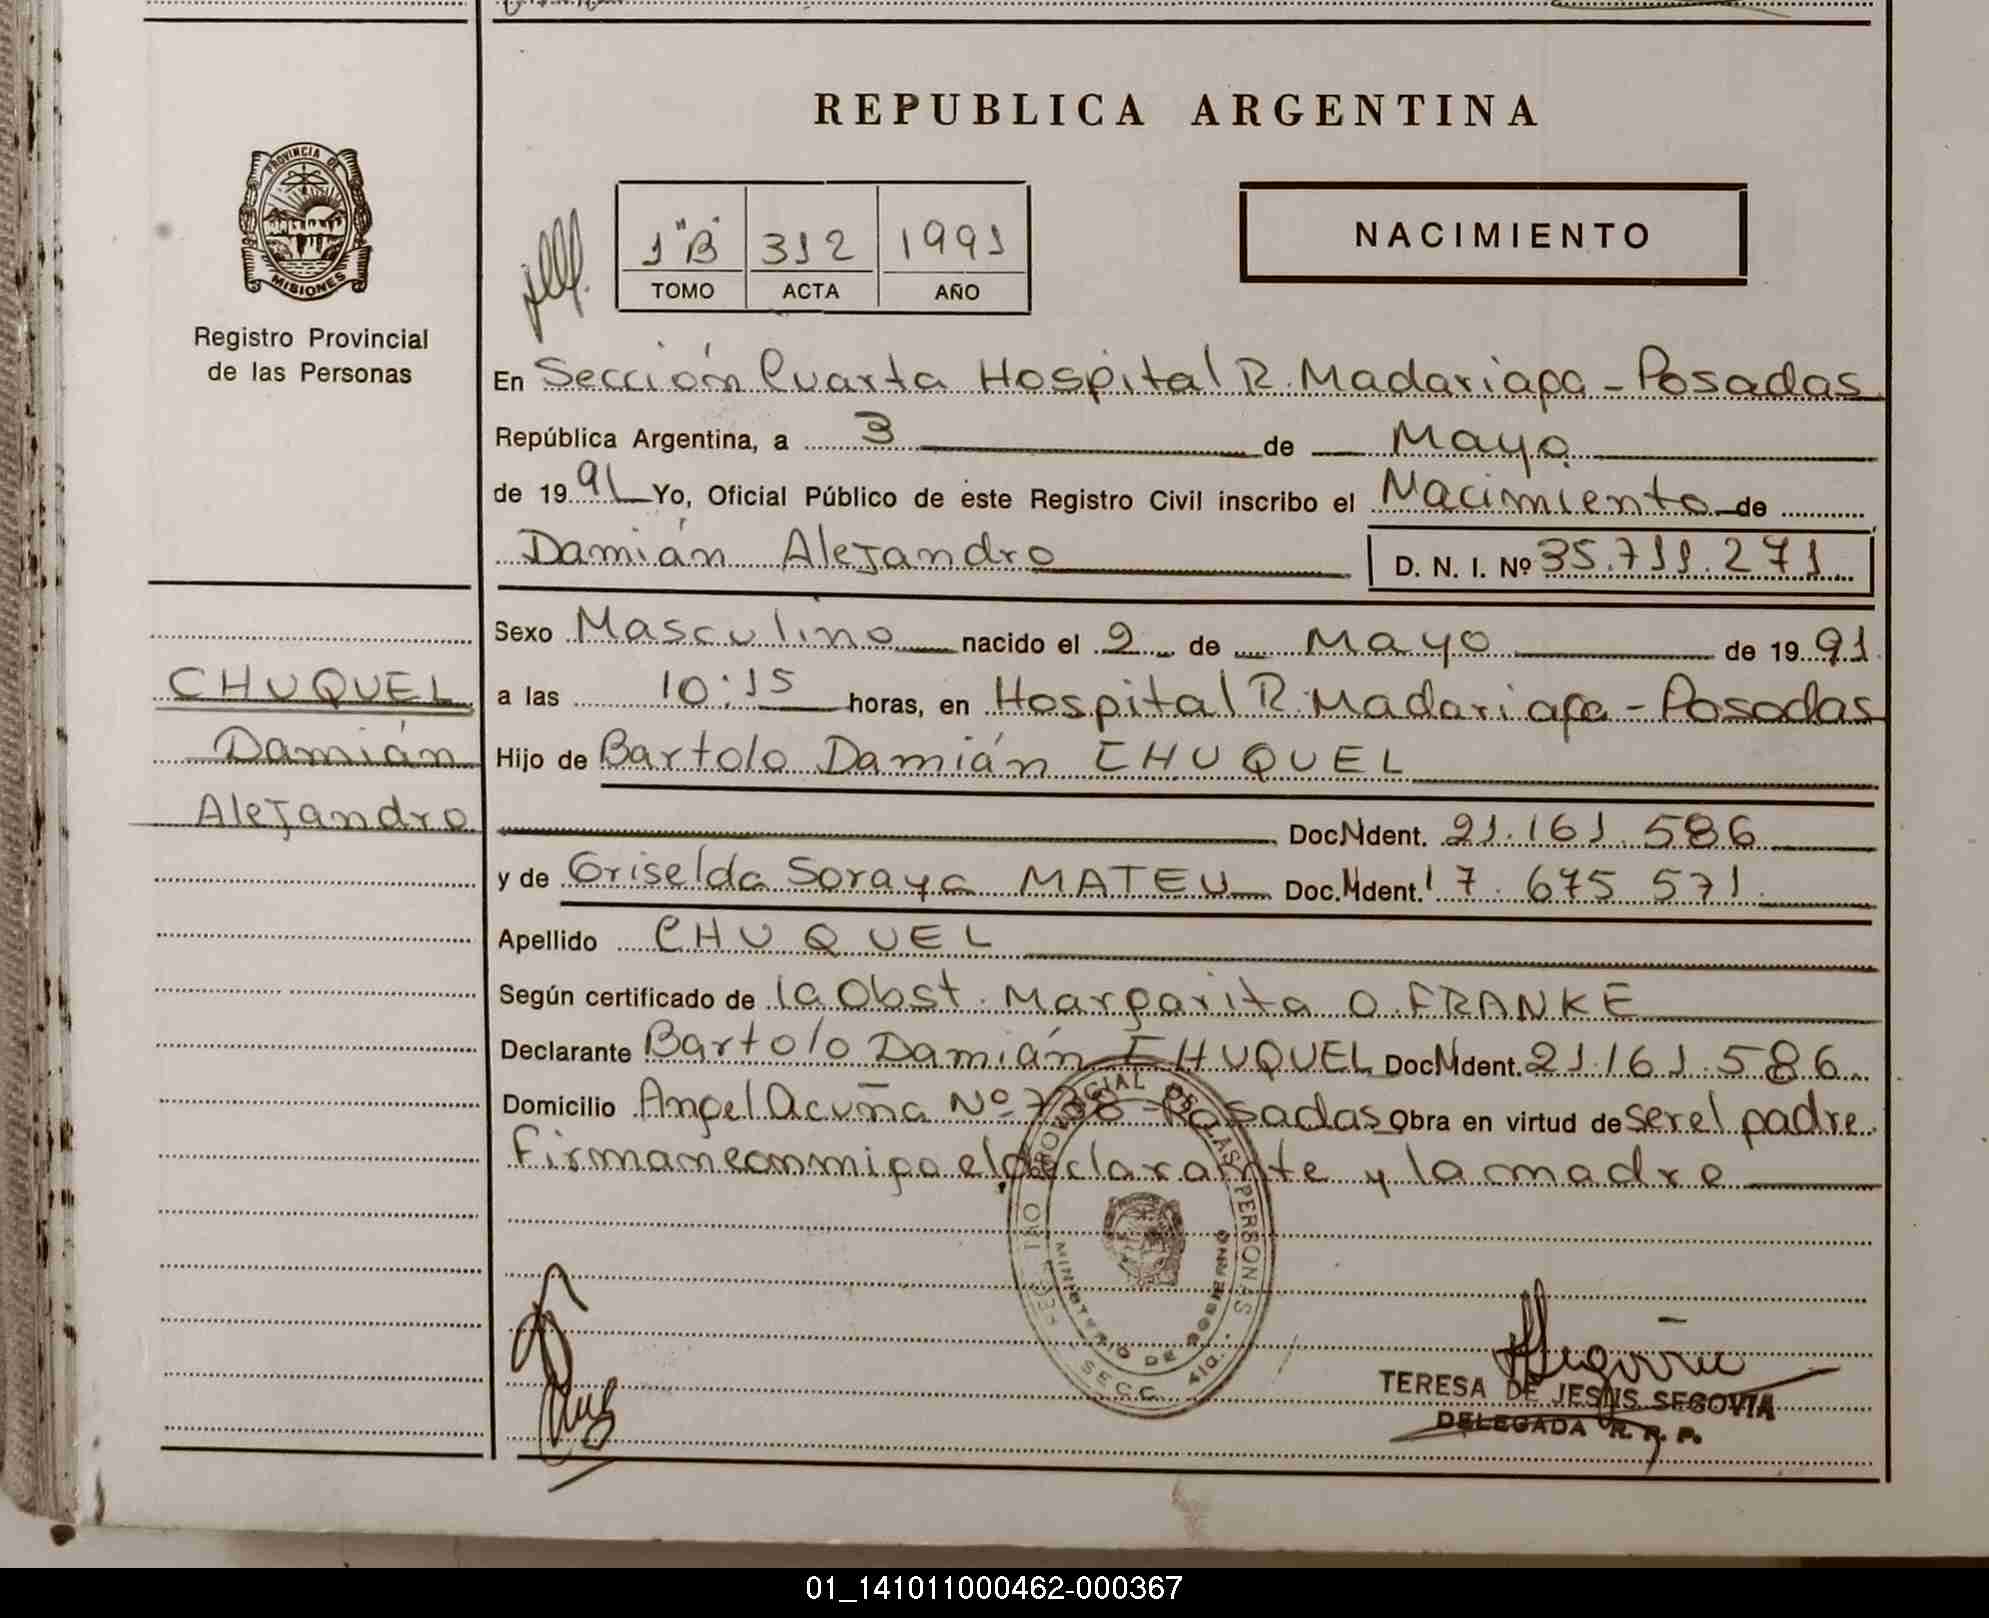 REPUBLICA ARGENTINA
PROVINCIA DE
MISIONES
Registro Provincial
de las Personas
1 "B" 312 1991
TOMO ACTA AÑO
NACIMIENTO
En Sección Cuarta Hospital R. Madariaga - Posadas
República Argentina, a 3 de Mayo
de 1991 Yo, Oficial Público de este Registro Civil inscribo el Nacimiento de
Damián Alejandro D. N. I. Nº 35.711.271
Sexo Masculino nacido el 2 de Mayo de 1991
CHUQUEL
Damián
Alejandro
a las 10:15 horas, en Hospital R. Madariaga - Posadas
Hijo de Bartolo Damián CHUQUEL
Doc.N.Ident. 21.161.586
y de Griselda Soraya MATEU Doc.N.Ident. 17.675 571
Apellido CHUQUEL
Según certificado de la Obst. Margarita O. FRANKE
Declarante Bartolo Damián CHUQUEL Doc.N.Ident. 21.161.586
Domicilio Angel Acuña Nº 738 - Posadas Obra en virtud de ser el padre.
Firman conmigo el declarante y la madre
PROVINCIAL DE LAS PERSONAS
MINISTERIO DE GOBIERNO
SECC. 4ta.
TERESA DE JESUS SEGOVIA
DELEGADA R. P. P.
01_141011000462-000367